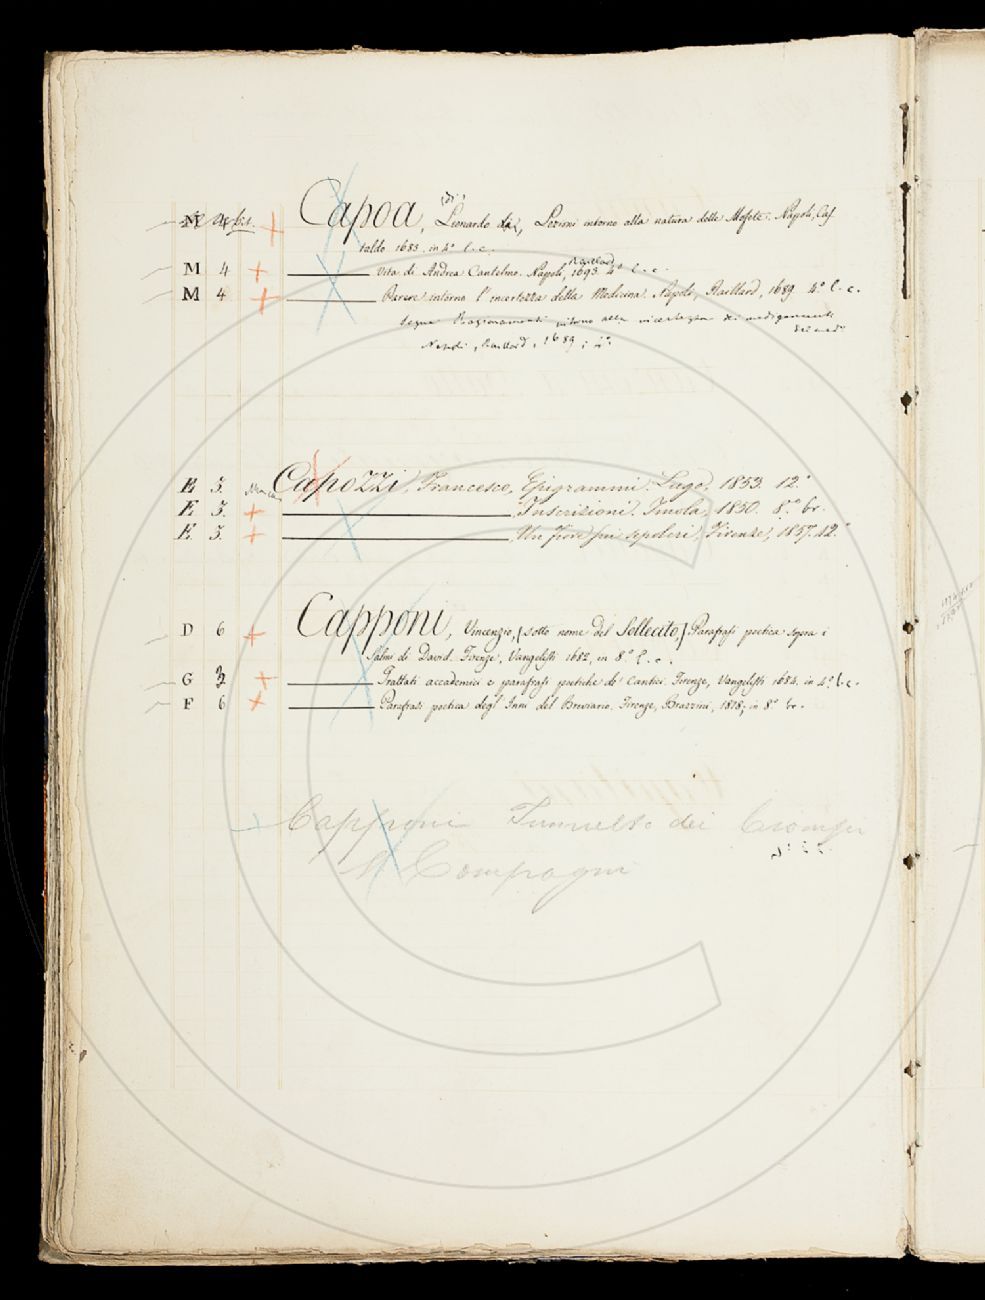 M 4 bis. Capoa, (di) Lionardo di, Lezioni intorno alla natura delle Mofete. Napoli, Cas-
taldo 1683. in 4° l. c.
M 4 + Vita di Andrea Cantelmo. Napoli, Raillard 1693. 4° l. c.
M 4 + Parere intorno l'incertezza della Medicina. Napoli, Raillard, 1689. 4° l. c.
Segue Ragionamenti intorno alla incertezza dei medicamenti
Napoli, Raillard, 1689, in 4°.
E 3. Manca Capozzi, Francesco, Epigrammi. Lugo, 1853. 12°
E 3. + Inscrizioni. Imola, 1850. 8° br.
E 3. + Un fiore sui sepolcri. Firenze, 1857. 12°
D 6 + Capponi, Vincenzio, (sotto nome del Sollecito,) Parafrasi poetica sopra i
Salmi di David. Firenze, Vangelisti 1682, in 8° l. c.
G 3 + Trattati accademici e parafrasi poetiche de' Cantici. Firenze, Vangelisti 1684. in 4° l. c.
F 6 + Parafrasi poetica degl'Inni del Breviario. Firenze, Brazzini, 1818, in 8° br.
Capponi Tumulto dei Ciompi
Compagni